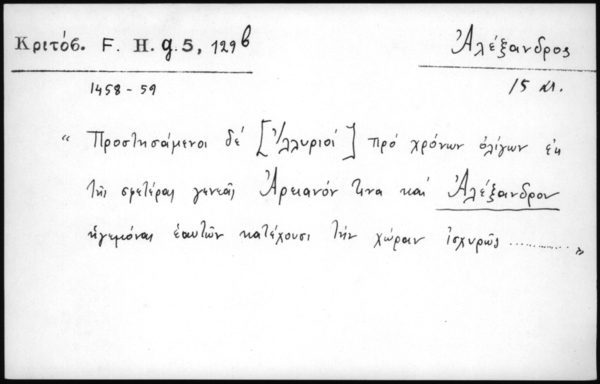 Κριτόβ. F. H. g. 5, 129 b
Ἀλέξανδρος
1458 - 59
15 αι.
“ Προστησάμενοι δέ [Ἰλλυριοί] πρό χρόνων ὀλίγων ἐκ
τῆς σφετέρας γενεᾶς Ἀρειανόν τινα καί Ἀλέξανδρον
ἡγεμόνας ἑαυτῶν κατέχουσι τήν χώραν ἰσχυρῶς ............ ”